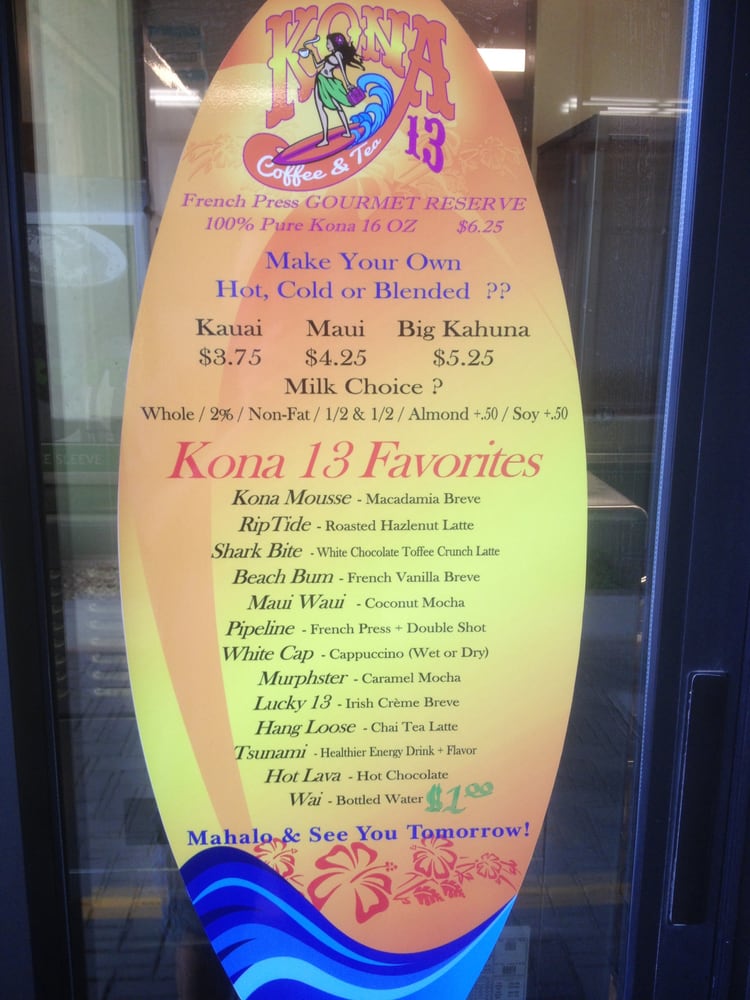 KONA
13
Coffee & Tea
French Press GOURMET RESERVE
100% Pure Kona 16 OZ $6.25
Make Your Own
Hot, Cold or Blended ??
Kauai Maui Big Kahuna
$3.75 $4.25 $5.25
Milk Choice ?
Whole / 2% / Non-Fat / 1/2 & 1/2 / Almond +.50 / Soy +.50
Kona 13 Favorites
Kona Mousse - Macadamia Breve
RipTide - Roasted Hazlenut Latte
Shark Bite - White Chocolate Toffee Crunch Latte
Beach Bum - French Vanilla Breve
Maui Waui - Coconut Mocha
Pipeline - French Press + Double Shot
White Cap - Cappuccino (Wet or Dry)
Murphster - Caramel Mocha
Lucky 13 - Irish Crème Breve
Hang Loose - Chai Tea Latte
Tsunami - Healthier Energy Drink + Flavor
Hot Lava - Hot Chocolate
Wai - Bottled Water $1.00
Mahalo & See You Tomorrow!
SLEEVE